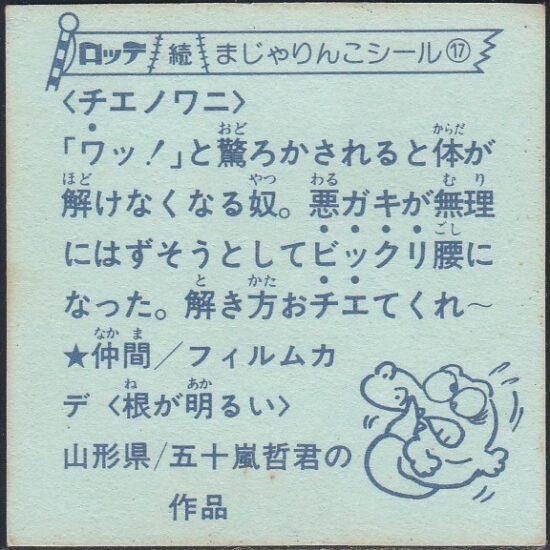 ロッテ 続 まじゃりんこシール⑰
〈チエノワニ〉
「ワッ!」と驚ろかされると体が
解けなくなる奴。悪ガキが無理
にはずそうとしてビックリ腰に
なった。解き方おチエてくれ～
★仲間/フィルムカ
デ〈根が明るい〉
山形県/五十嵐哲君の
作品